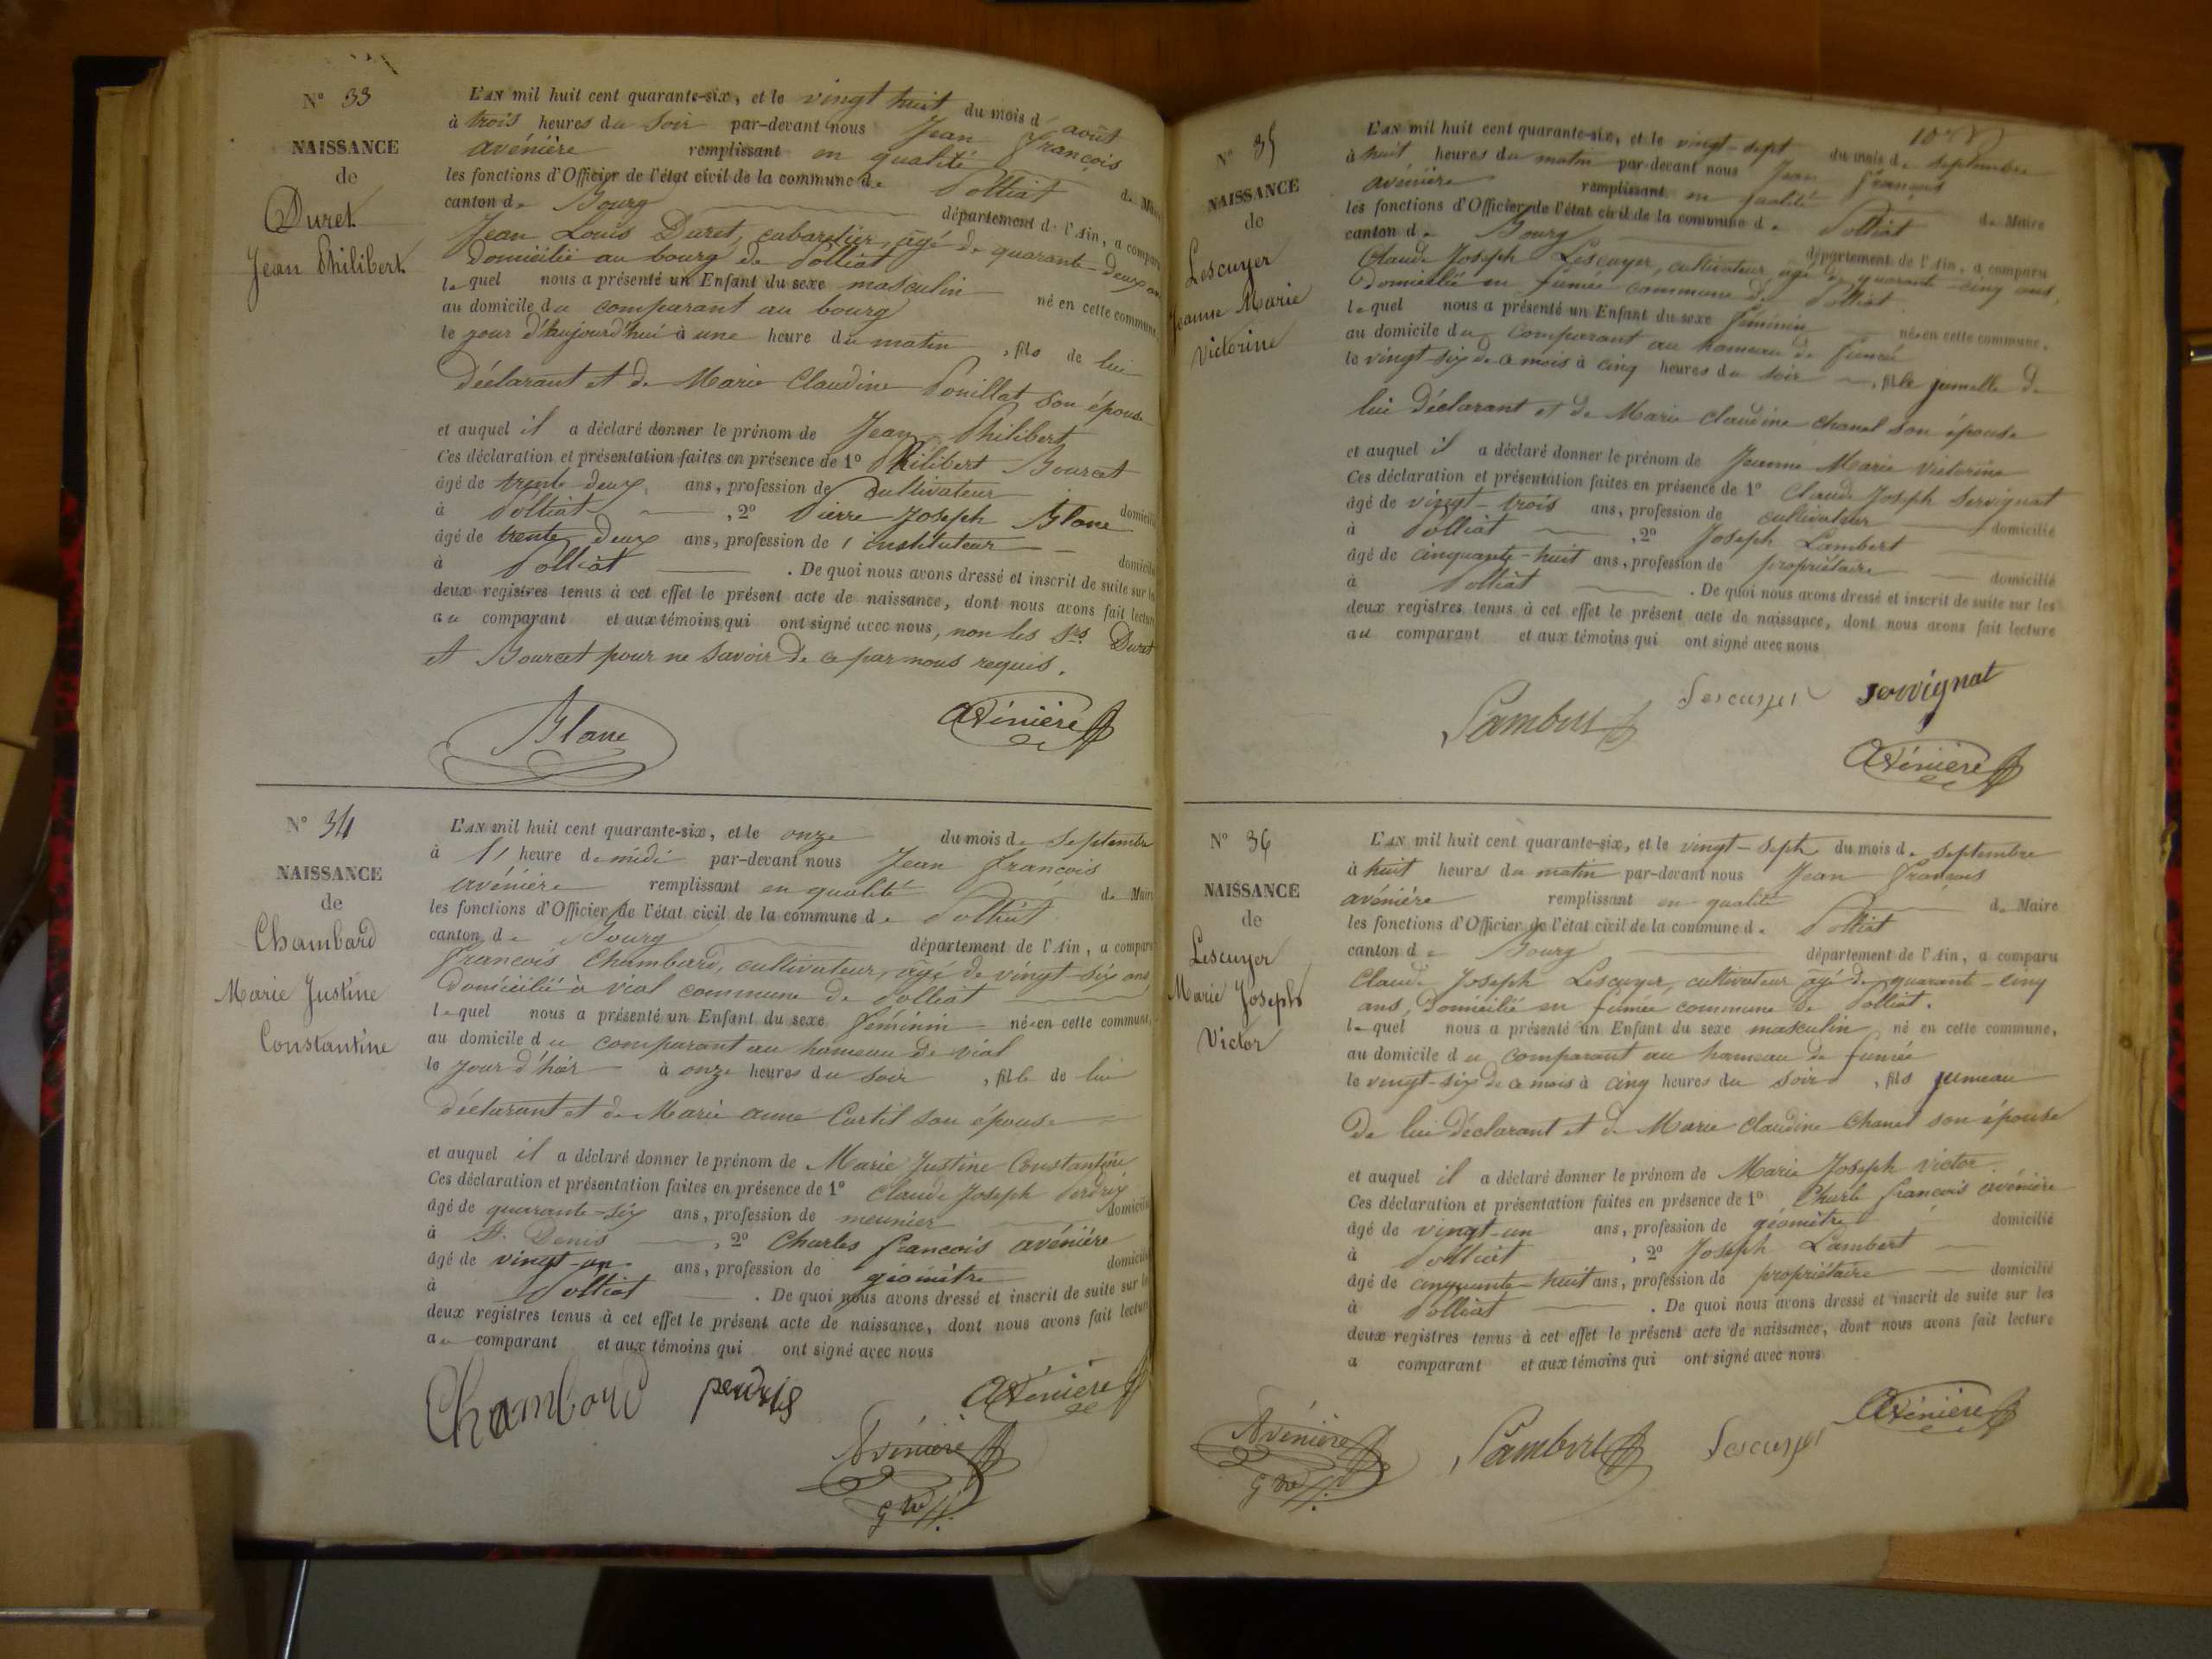 N° 33
NAISSANCE
de
Duret
Jean Philibert
L'AN mil huit cent quarante-six, et le vingt huit du mois d'août
à trois heures du soir par-devant nous Jean François
avénière remplissant en qualité de Maire
les fonctions d'Officier de l'état civil de la commune de Polliat
canton de Bourg département de l'Ain, a comparu
Jean Louis Duret, cabaretier, âgé de quarante-deux ans
domicilié au bourg de Polliat
lequel nous a présenté un Enfant du sexe masculin né en cette commune,
au domicile du comparant au bourg
le jour d'aujourd'hui à une heure du matin, fils de lui
déclarant et de Marie Claudine Pouillat son épouse
et auquel il a déclaré donner le prénom de Jean Philibert
Ces déclaration et présentation faites en présence de 1° Philibert Bourcet
âgé de trente deux ans, profession de cultivateur domicilié
à Polliat, 2° Pierre Joseph Blanc
âgé de trente deux ans, profession de instituteur domicilié
à Polliat. De quoi nous avons dressé et inscrit de suite sur les
deux registres tenus à cet effet le présent acte de naissance, dont nous avons fait lecture
au comparant et aux témoins qui ont signé avec nous, non les Srs Duret
et Bourcet pour ne savoir de ce par nous requis.
Blanc
Avénière
N° 34
NAISSANCE
de
Chambard
Marie Justine
Constantine
L'AN mil huit cent quarante-six, et le onze du mois de septembre
à l' heure de midi par-devant nous Jean françois
avénière remplissant en qualité de Maire
les fonctions d'Officier de l'état civil de la commune de Polliat
canton de Bourg département de l'Ain, a comparu
françois Chambard, cultivateur, âgé de vingt-six ans,
domicilié à vial commune de Polliat
lequel nous a présenté un Enfant du sexe féminin née en cette commune,
au domicile du comparant au hameau de vial
le jour d'hier à onze heures du soir, fille de lui
déclarant et de Marie anne Curtil son épouse
et auquel il a déclaré donner le prénom de Marie Justine Constantine
Ces déclaration et présentation faites en présence de 1° Claude Joseph Perdrix
âgé de quarante-six ans, profession de meunier domicilié
à St. Denis, 2° Charles françois avénière
âgé de vingt-un ans, profession de géomètre domicilié
à Polliat. De quoi nous avons dressé et inscrit de suite sur les
deux registres tenus à cet effet le présent acte de naissance, dont nous avons fait lecture
au comparant et aux témoins qui ont signé avec nous
Chambard
perdrix
Avénière
Avénière
N° 35
NAISSANCE
de
Lescuyer
Jeanne Marie
Victorine
L'AN mil huit cent quarante-six, et le vingt-sept du mois de septembre
à huit heures du matin par-devant nous Jean françois
avénière remplissant en qualité de Maire
les fonctions d'Officier de l'état civil de la commune de Polliat
canton de Bourg département de l'Ain, a comparu
Claude Joseph Lescuyer, cultivateur âgé de quarante-cinq ans,
domicilié en fumée commune de Polliat.
lequel nous a présenté un Enfant du sexe féminin née en cette commune,
au domicile du comparant au hameau de fumée
le vingt-six de ce mois à cinq heures du soir, fille jumelle de
lui déclarant et de Marie claudine chanel son épouse
et auquel il a déclaré donner le prénom de Jeanne Marie Victorine
Ces déclaration et présentation faites en présence de 1° Claude Joseph Servignat
âgé de vingt-trois ans, profession de cultivateur domicilié
à Polliat, 2° Joseph Lambert
âgé de cinquante-huit ans, profession de propriétaire domicilié
à Polliat. De quoi nous avons dressé et inscrit de suite sur les
deux registres tenus à cet effet le présent acte de naissance, dont nous avons fait lecture
au comparant et aux témoins qui ont signé avec nous
Lambert
Lescuyer
servignat
Avénière
N° 36
NAISSANCE
de
Lescuyer
Marie Joseph
Victor
L'AN mil huit cent quarante-six, et le vingt-sept du mois de septembre
à huit heures du matin par-devant nous Jean françois
avénière remplissant en qualité de Maire
les fonctions d'Officier de l'état civil de la commune de Polliat
canton de Bourg département de l'Ain, a comparu
Claude Joseph Lescuyer, cultivateur âgé de quarante-cinq
ans, domicilié en fumée commune de Polliat.
lequel nous a présenté un Enfant du sexe masculin né en cette commune,
au domicile du comparant au hameau de fumée
le vingt-six de ce mois à cinq heures du soir, fils jumeau
de lui déclarant et de Marie claudine Chanel son épouse
et auquel il a déclaré donner le prénom de Marie Joseph Victor
Ces déclaration et présentation faites en présence de 1° Charle françois avénière
âgé de vingt-un ans, profession de géomètre domicilié
à Polliat, 2° Joseph Lambert
âgé de cinquante-huit ans, profession de propriétaire domicilié
à Polliat. De quoi nous avons dressé et inscrit de suite sur les
deux registres tenus à cet effet le présent acte de naissance, dont nous avons fait lecture
a comparant et aux témoins qui ont signé avec nous
Avénière
Lambert
Lescuyer
Avénière